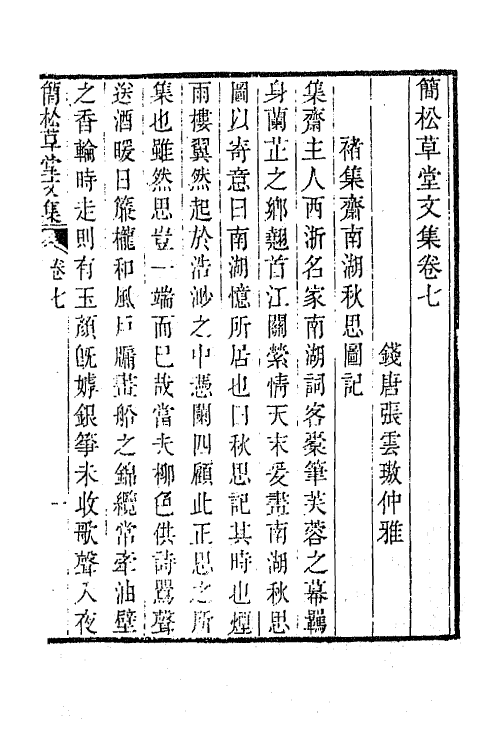 簡松草堂文集卷七
錢唐張雲璈仲雅
褚集齋南湖秋思圖記
集齋主人西浙名家南湖詞客槖筆芙蓉之幕羈
身蘭芷之鄉翹首江關縈情天末爰畵南湖秋思
圖以寄意曰南湖憶所居也曰秋思記其時也煙
雨樓翼然起於浩渺之中憑闌四顧此正思之所
集也雖然思豈一端而已故當夫柳色供詩鶯聲
送酒暖日簾櫳和風戶牖畵船之錦纜常牽油壁
之香輪時走則有玉顔旣嫭銀箏未收歌聲入夜
簡松草堂文集
卷七
一